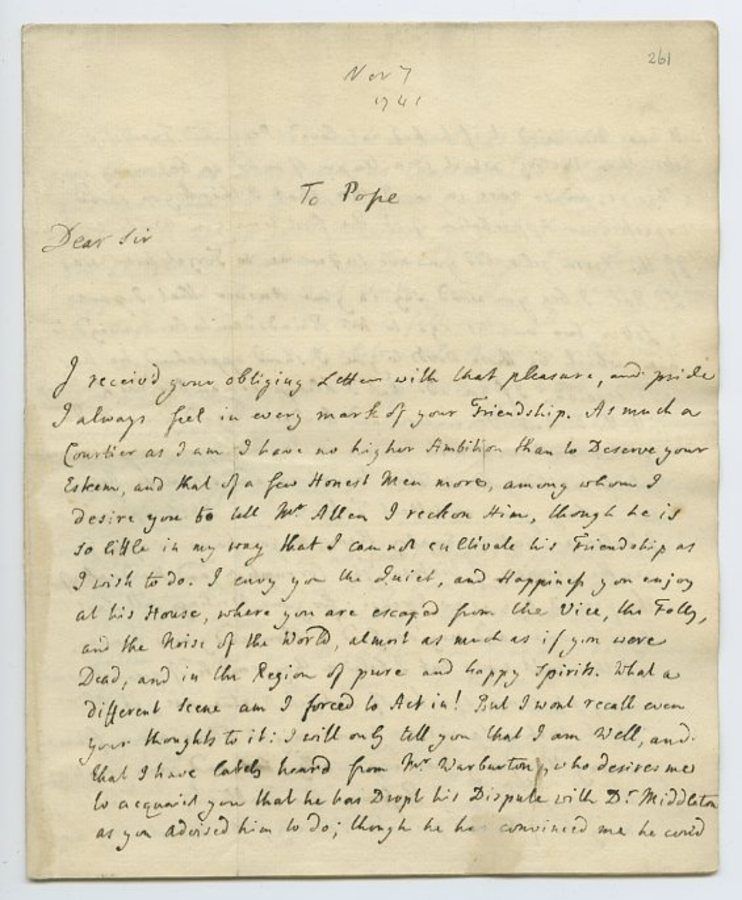 261
Nov 7
1741
To Pope
Dear Sir
I receivd your obliging Letter with that pleasure, and pride
I always feel in every mark of your Friendship. As much a
Courtier as I am I have no higher Ambition than to Deserve your
Esteem, and that of a few Honest Men more, among whom I
desire you to tell Mr Allen I reckon Him, though he is
so little in my way that I can not cultivate his Friendship as
I wish to do. I envy you the Quiet, and Happiness you enjoy
at his House, where you are escaped from the Vice, the Folly,
and the Noise of the World, almost as much as if you were
Dead, and in the Region of pure and happy Spirits. What a
different Scene am I forced to Act in! But I wont recall even
your thoughts to it: I will only tell you that I am Well, and
that I have lately heard from Mr Warburton, who desires me
to acquaint you that he has Dropt his Dispute with Dr Middleton
as you advised him to do; though he has convinced me he could